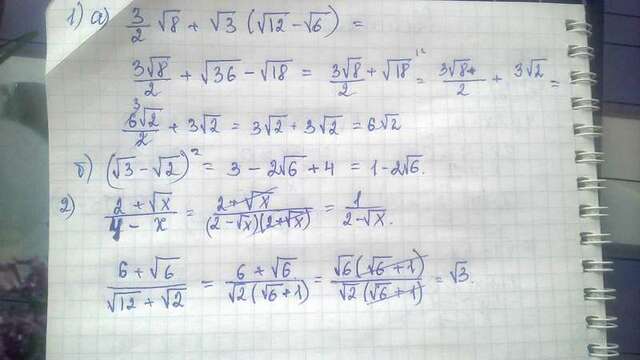 1) а) 3/2 √8 + √3 (√12 - √6) =
3√8/2 + √36 - √18 = 3√8/2 + √18 = 3√8/2 + 3√2 =
6√2/2 + 3√2 = 3√2 + 3√2 = 6√2
б) (√3 - √2)² = 3 - 2√6 + 4 = 1 - 2√6.
2) 2 + √x / 4 - x = 2 + √x / (2 - √x)(2 + √x) = 1 / 2 - √x.
6 + √6 / √12 + √2 = 6 + √6 / √2 (√6 + 1) = √6 (√6 + 1) / √2 (√6 + 1) = √3.